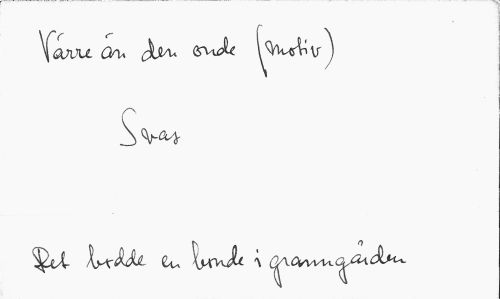 Värre än den onde (motiv)
Svar
Det bodde en bonde i granngården